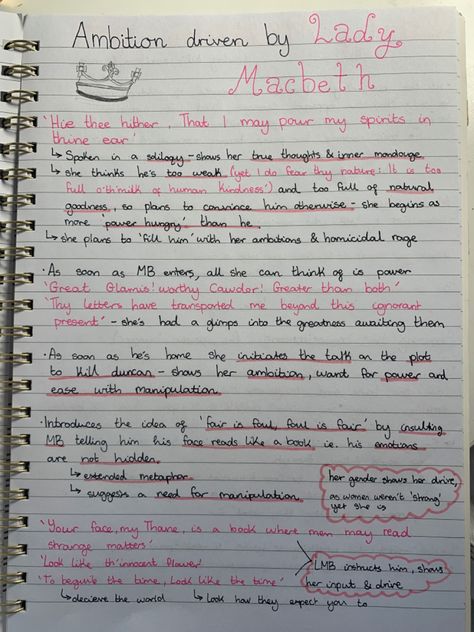 Ambition driven by Lady
Macbeth
'Hie thee hither, That I may pour my spirits in
thine ear'
↳ Spoken in a solilogy - shows her true thoughts & inner monologue
↳ she thinks he's too weak (yet I do fear thy nature: It is too
full o'th'milk of human kindness') and too full of natural
goodness, so plans to convince him otherwise - she begins as
more 'power hungry' than he.
↳ she plans to 'fill him' with her ambitions & homicidal rage
• As soon as MB enters, all she can think of is power
'Great Glamis! worthy Cawdor! Greater than both'
'Thy letters have transported me beyond this ignorant
present' - she's had a glimps into the greatness awaiting them
• As soon as he's home she initiates the talk on the plot
to kill duncan - shows her ambition, want for power and
ease with manipulation
• Introduces the idea of 'fair is foul, foul is fair' by insulting
MB telling him his face reads like a book i.e. his emotions
are not hidden.
↳ extended metaphor
↳ suggests a need for manipulation
her gender shows her drive,
as women weren't 'strong'
yet she is
'Your face, my Thane, is a book where men may read
strange matters'
'Look like th'innocent flower'
'To beguile the time, Look like the time'
↳ decieve the world ↳ look how they expect you to
LMB instructs him, shows
her input & drive